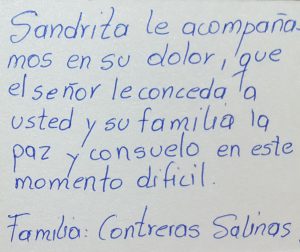 Sandrita le acompaña-
mos en su dolor, que
el señor le conceda a
usted y su familia la
paz y consuelo en este
momento dificil.
Familia: Contreras Salinas